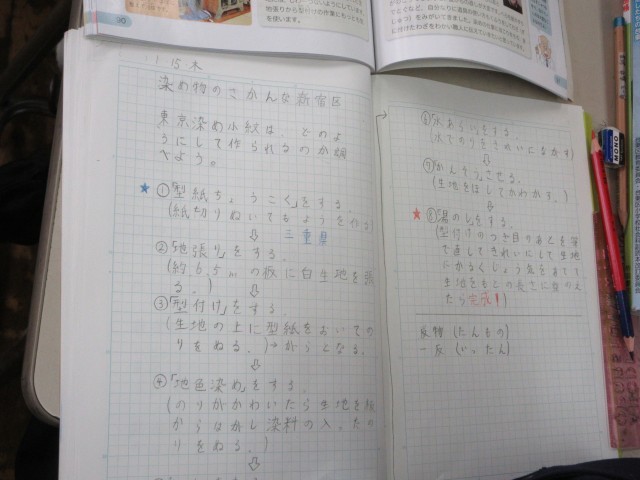 を使います。
1 15 木
染め物のさかんな新宿区
東京染め小紋は、どのよ
うにして作られるのか調
べよう。
★①「型紙ちょうこく」をする。
(紙切りぬいてもようを作る)
⇩ 三重県
②「地張り」をする。
(約6.5mの板に白生地を張
る。) ⇩
③「型付け」をする。
(生地の上に型紙をおいての
りをぬる。)→がらとなる。
⇩
④「地色染め」をする。
(のりがかわいたら生地を板
からはがし染料の入ったの
りをぬる。)
⇩
⑥「水あらい」をする。
(水でのりをきれいにながす)
⇩
⑦「かんそう」させる。
(生地をほしてかわかす。)
⇩
★⑧「湯のし」をする。
(型付けのつぎ目のあとを筆
で直してきれいにして生地
にかるくじょう気をあてて
生地をもとの長さに整え
たら完成!)
反物 (たんもの)
一反 (いったん)
MONO